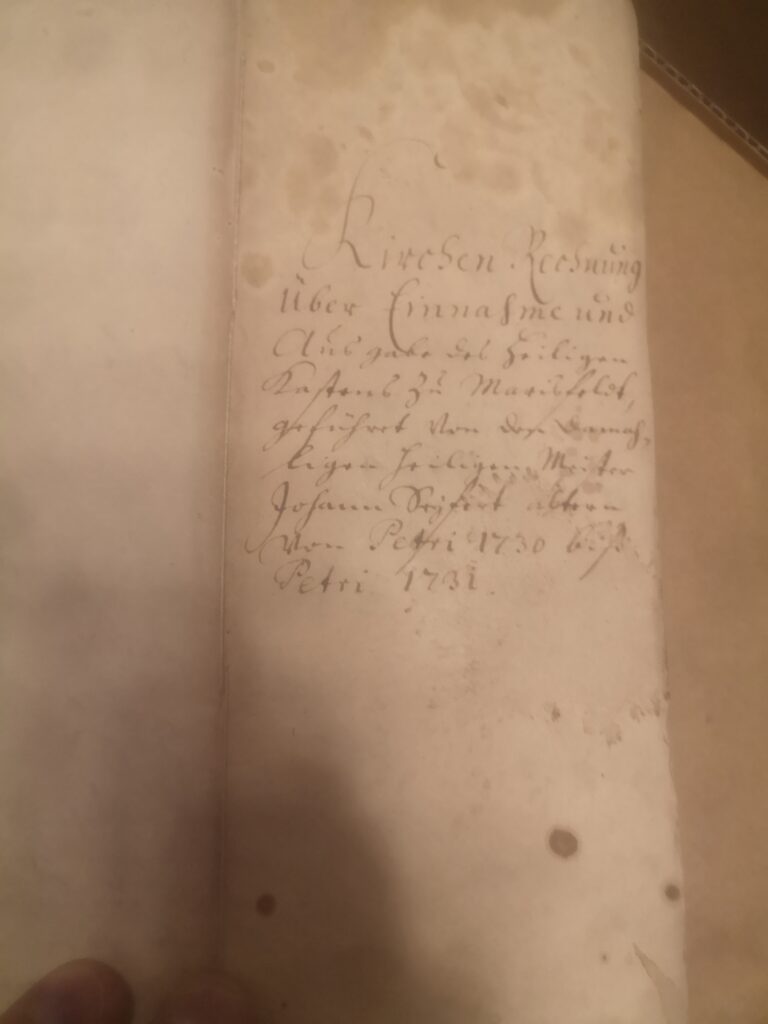 Kirchen Rechnung
Über Einnahme und
Ausgabe des Heiligen
Kastens zu Marisfeldt,
geführet von dem damah-
ligen Heiligen Meister
Johann Seyfert ältern
von Petri 1730 biß
Petri 1731.